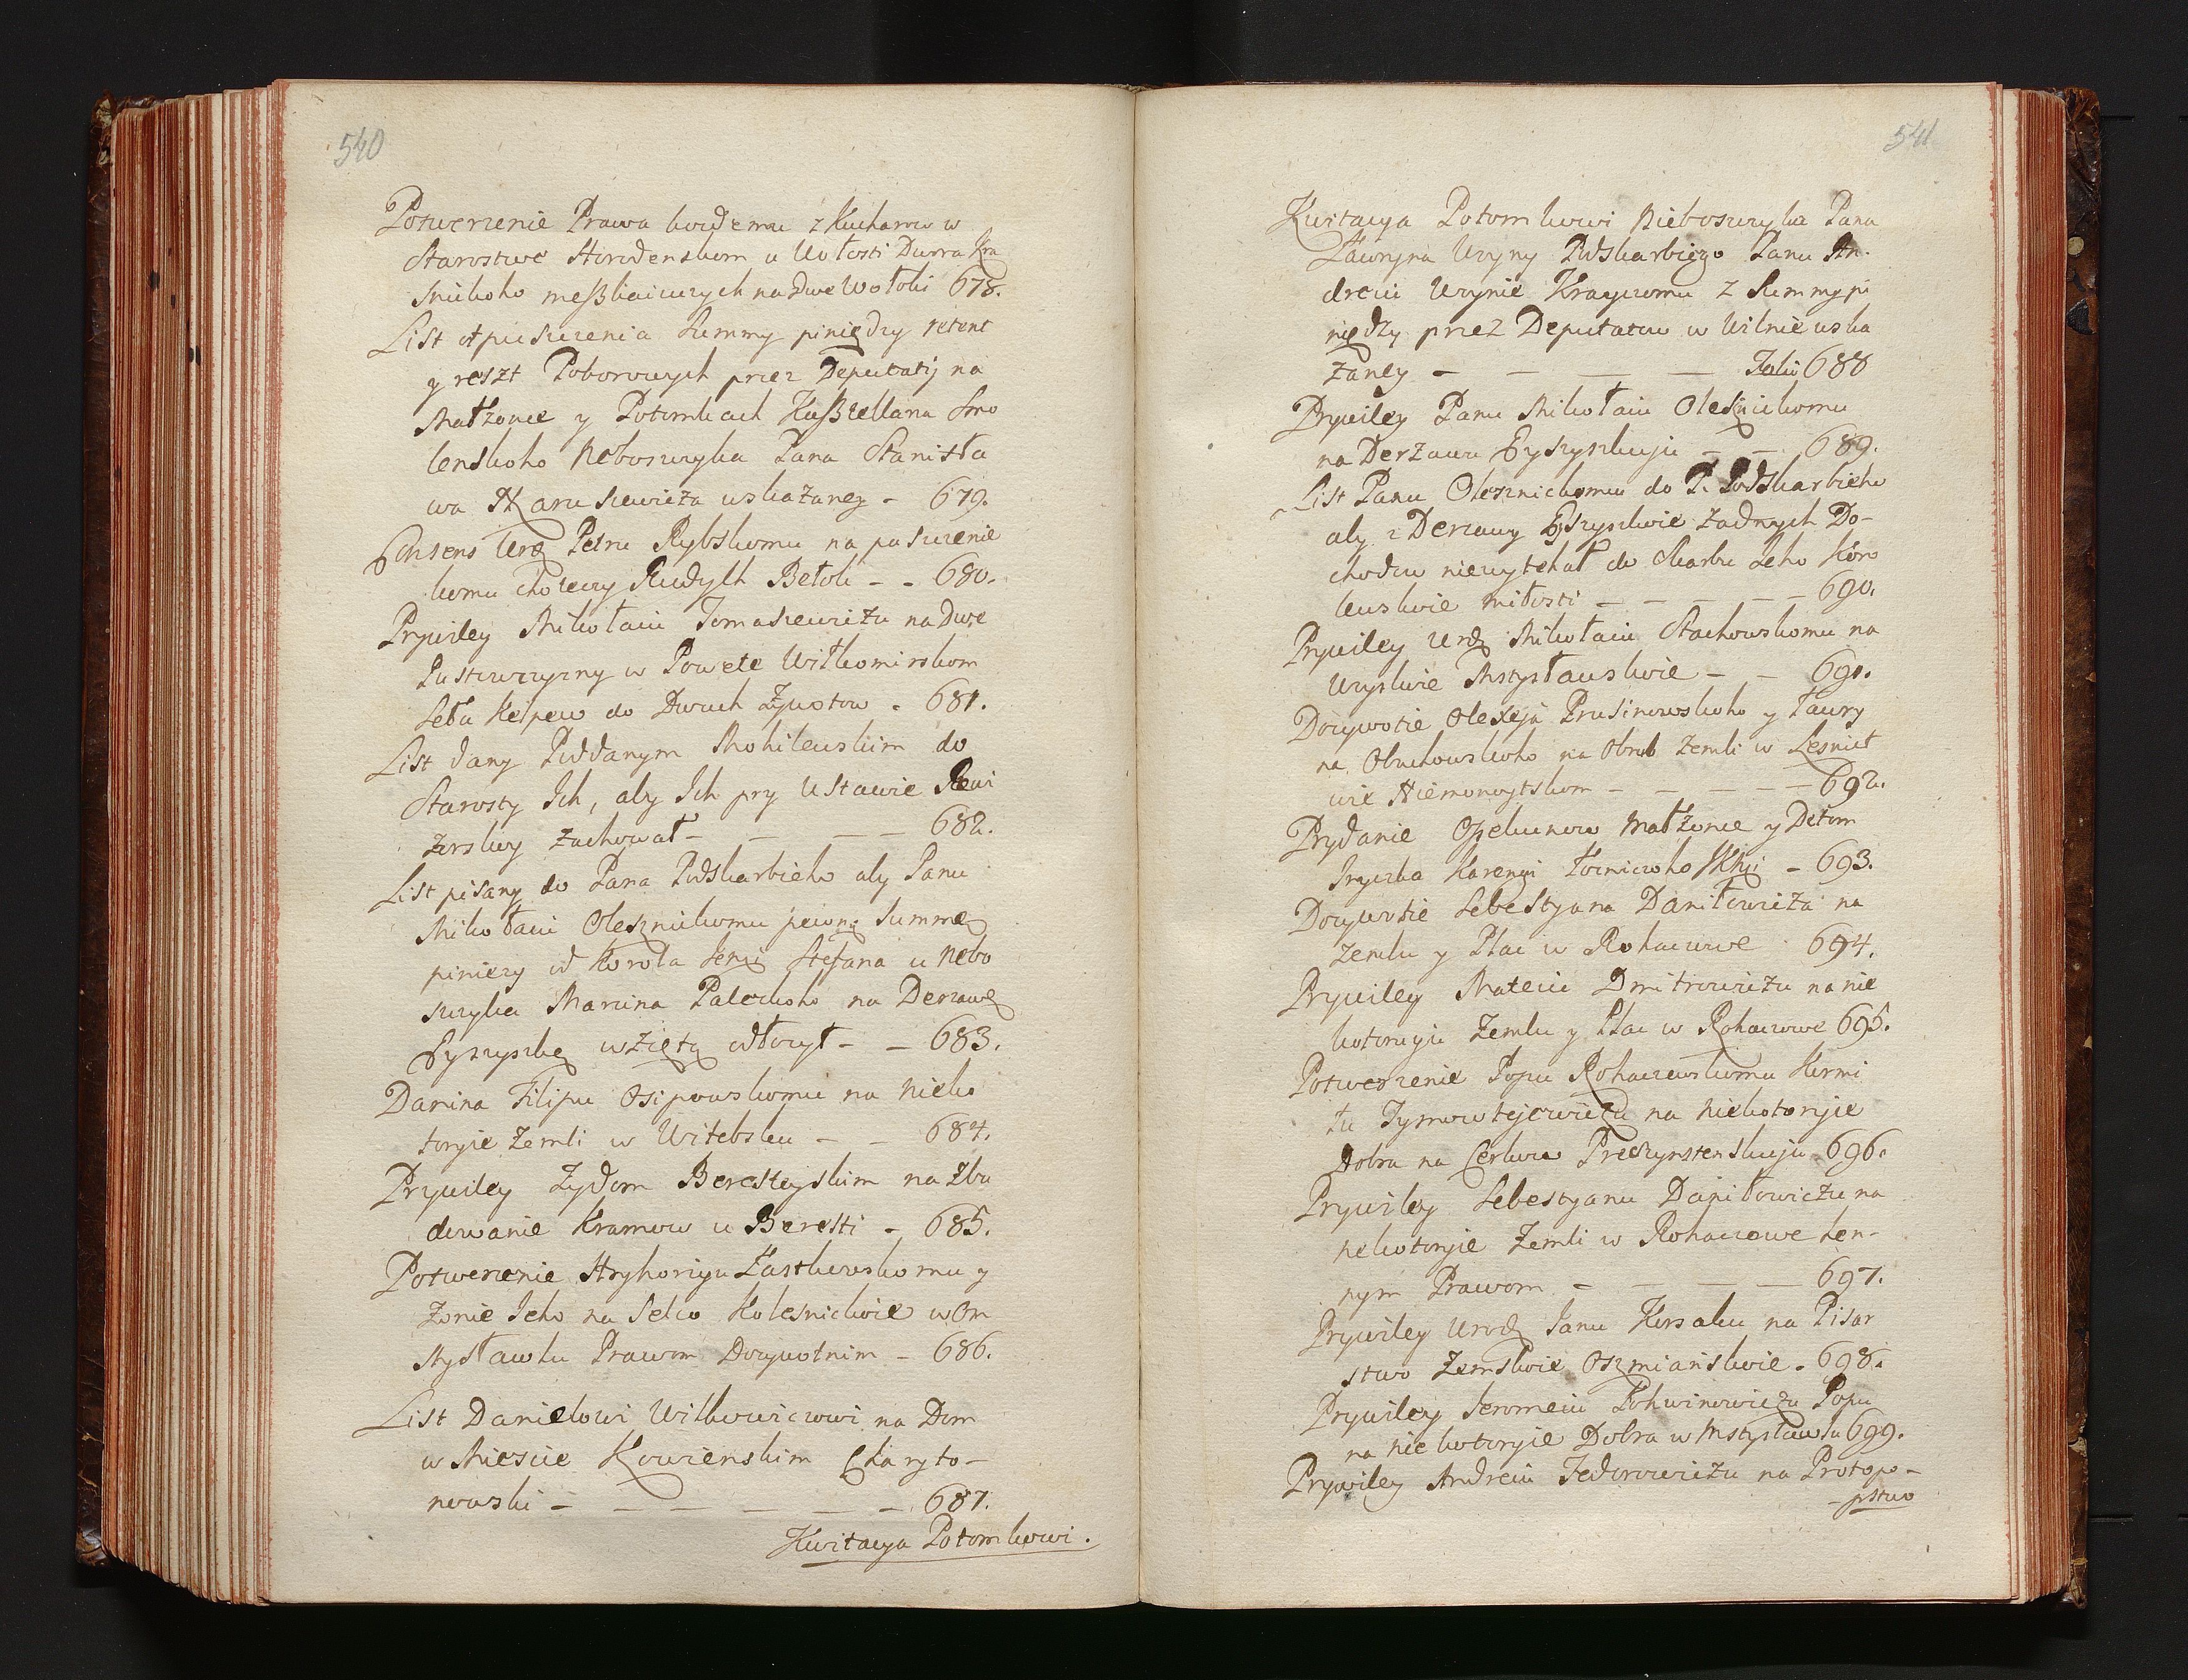 540
Potwerzenie Prawa kożdemu z Kucharow w
Starostwe Horodenskom u Wołosti Dworra Kra
snickoho meszkaiuczych na Dwe Wołoki 678.
List otpuszczenia Summy piniędzy retent
y reszt Poborowych przez Deputaty na
Małżonce y Potomkach Kasztellana Smo
lenskoho Neboszczyka Pana Stanisła
wa Naruszewicza wskazaney - 679.
Consens Urż Petru Rybskomu na puszczenie
komu choteczy Rudykh Bełok - - 680.
Prywiley Mikołaiu Tomaszewiczu na Dwe
Pustowczyzny w Powete Wiłkomirskom
Seła Keipew do Dwuch Żywotow - 681.
List dany Poddanym Mohilewskim do
Starosty Ich, aby Ich pry Ustawie Rewi
zorskoy zachował - - - - 682.
List pisany do Pana Podskarbieho aby Panu
Mikołaiu Olesznickomu pewną Summę
piniezy od Korola Jeho Stefana u nebo
szczyka Marcina Paleckoho na Derżawę
Eyszyszkę wziętą odłożył - - 683.
Danina Filipu Osipowskomu na nieko
toryie Zemli w Witebsku - - 684.
Prywiley Żydom Berestejskim na zbu
dowanie Kramow u Beresti - 685.
Potwerżenie Hryhoriju Łastkowskomu y
Żonie Jeho na Selco Kolesnickoie w Om
stysławlu Prawom Dożywotnim - 686.
List Danielowi Wilkowiczowi na Dom
w Miescie Kowienskim Charyto-
nowski - - - - - - 687.
Kwitacya Potomkowi.
541
Kwitacya Potomkowi Nieboszczyka Pana
Ławryna Woyny Podskarbiego Panu An-
dreiu Woynie Krayczomu z Summy pi
niędzy przez Deputatow w Wilnie wska
zaney - - - - Folio 688
Prywiley Panu Mikołaiu Olesznickomu
na Derżawu Eyszyszkuju - - 689.
List Panu Olesznickomu do P. Podskarbieho
aby z Derżawy Eyszyszkoie żadnych Do-
chodow niewytehał do Skarbu Jeho Koro
lewskoie miłosti - - - - - 690.
Prywiley Urż Mikołaiu Stachowskomu na
Woyskie Mstysławskoie - - 691.
Dożywotie Olexeja Prusinowskoho y Ławry
na Obuchowskoho na Obrub Zemli w Lesnict
wie Niemonoytskom - - - - - 692.
Prydanie Opekunow Małżonce y Detom
Iryczka Łowniczoho - 693.
Dożywotie Sebestyana Daniłowicza na
Zemlu y Plac w Rohaczowe - 694.
Prywiley Mateiu Dmitrowiczu na nie
kotoruju Zemlu y Plac w Rohaczowe 695.
Potwerżenie Popu Rohaczewskomu Kurmi
łu Tymowtejewiczu na niekotoryie
Dobra na Cerkow Preczystenskuju 696.
Prywiley Sebestyanu Daniłowiczu na
nekotoryie Zemli w Rohaczowe Len-
nym Prawom - - - - 697.
Prywiley Urodż Janu Korsaku na Pisar
stwo Zemskoie Oszmianskoie - 698.
Prywiley Jeromeiu Pohwinowiczu Popu
na nie kotoryie Dobra w Mstysławlu 699.
Prywiley Andreiu Fedorowiczu na Protopo-
-pstwo